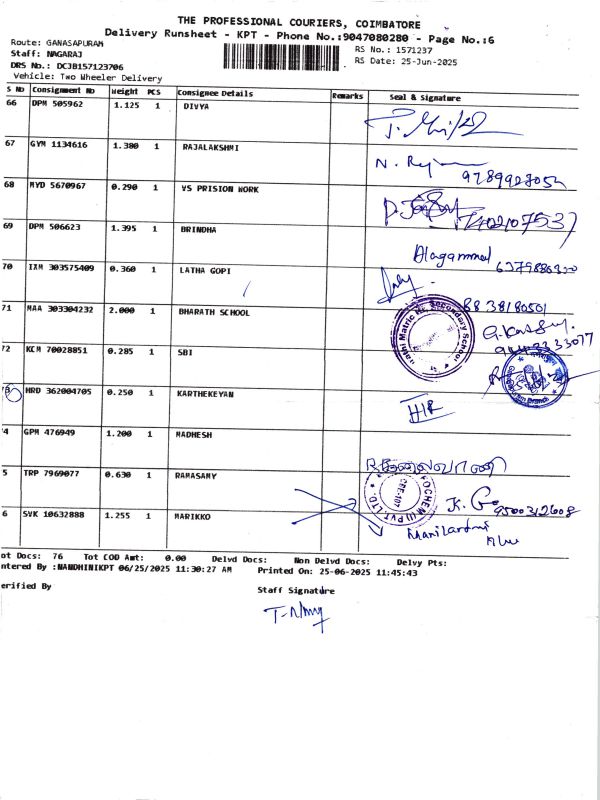 THE PROFESSIONAL COURIERS, COIMBATORE
Delivery Runsheet - KPT - Phone No.:9047080280 - Page No.:6
Route: GANASAPURAM
RS No.: 1571237
Staff: NAGARAJ
RS Date: 25-Jun-2025
DRS No.: DCJB157123706
Vehicle: Two Wheeler Delivery
S No Consignment No Weight PCS Consignee Details Remarks Seal & Signature
66 DPM 505962 1.125 1 DIVYA
67 GYM 1134616 1.380 1 RAJALAKSHMI
68 MYD 5670967 0.290 1 VS PRISION WORK
69 DPM 506623 1.395 1 BRINDHA
Alagammal
70 IXM 303575409 0.360 1 LATHA GOPI
71 MAA 303304232 2.000 1 BHARATH SCHOOL
8838180501
72 KCM 70028851 0.285 1 SBI
73 HRD 362004705 0.250 1 KARTHEKEYAN
4 GPM 476949 1.200 1 MADHESH
5 TRP 7969077 0.630 1 RAMASAMY
9500312608
6 SVK 10632888 1.255 1 MARIKKO
ot Docs: 76 Tot COD Amt: 0.00 Delvd Docs: Non Delvd Docs: Delvy Pts:
ntered By :NANDHINIKPT 06/25/2025 11:30:27 AM Printed On: 25-06-2025 11:45:43
erified By
Staff Signature